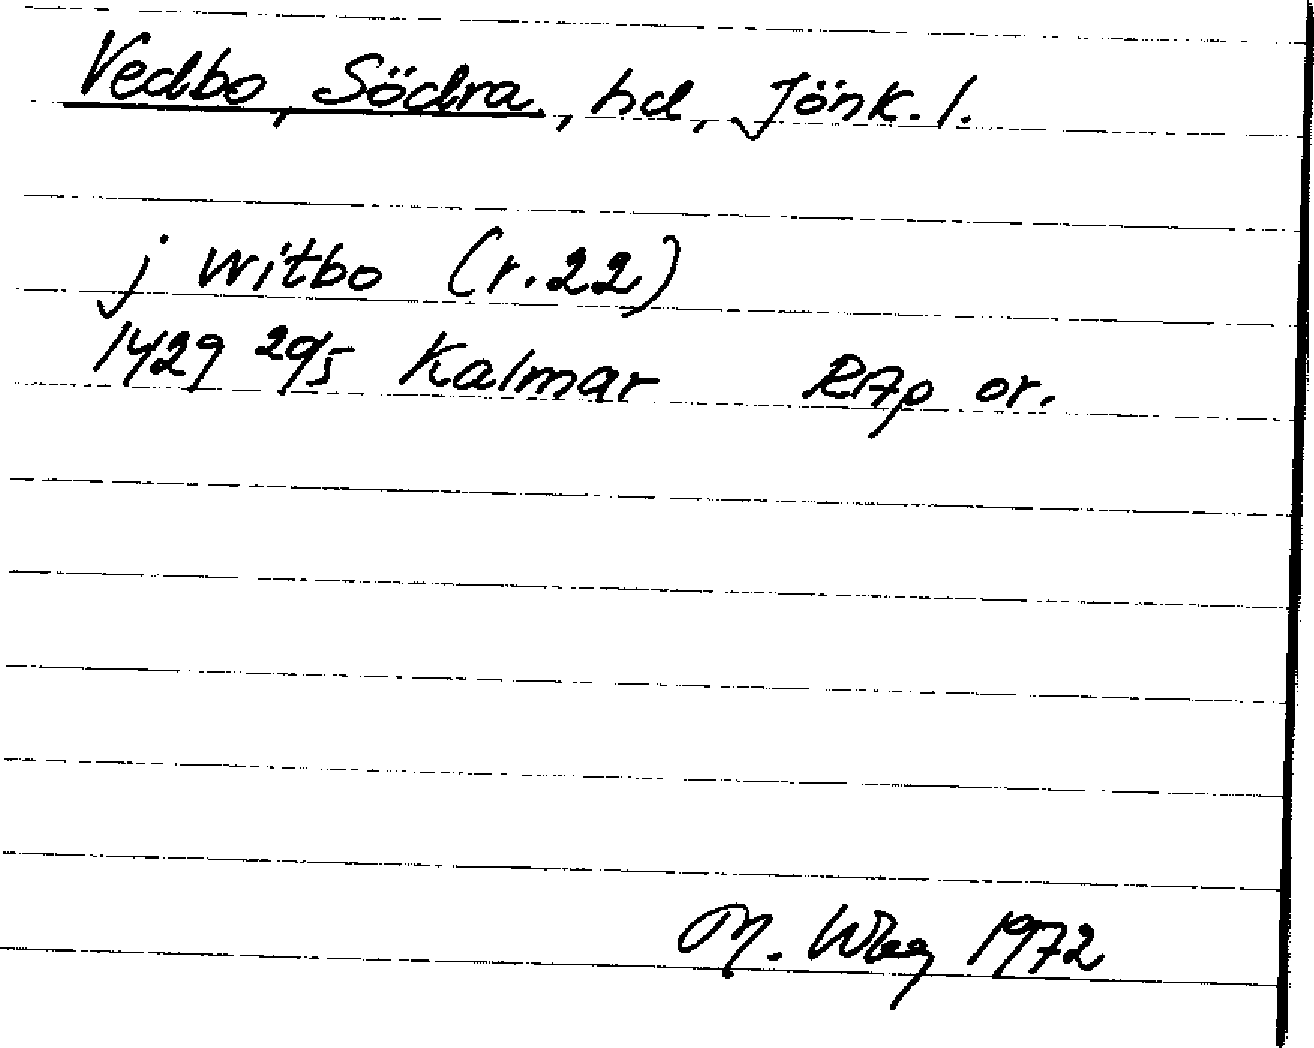 Vedbo, Södra, hd, Jönk. l.
j witbo (r. 22)
1429 29/5 Kalmar RAp or.
M. Wbg 1972